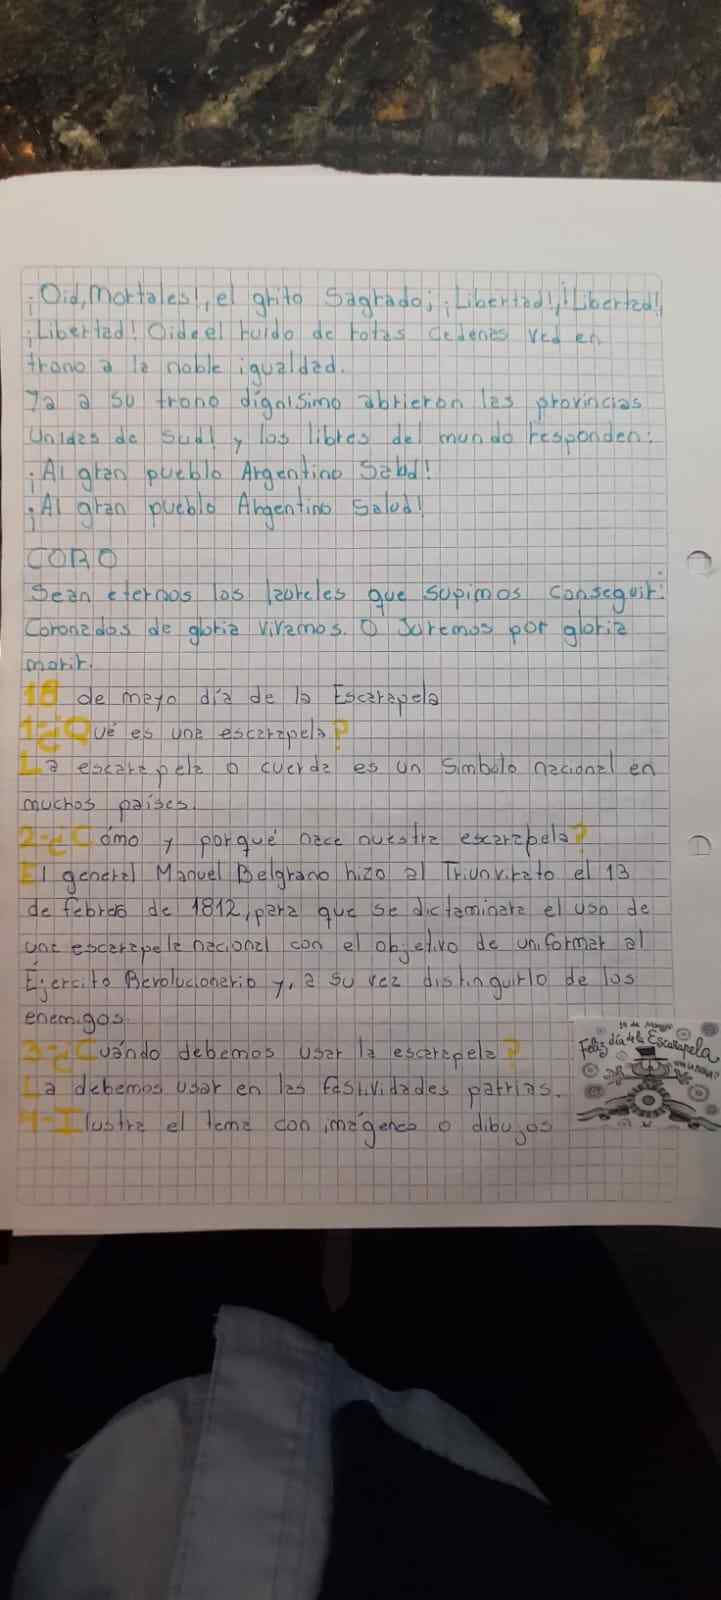 ¡Oid, Mortales!, el grito Sagrado; ¡Libertad!, ¡Libertad!,
¡Libertad! Oid el ruido de rotas cadenas ved en
trono a la noble igualdad.
Ya a su trono dígnisimo abrieron las provincias
Unidas de Sud! y los libres del mundo responden:
¡Al gran pueblo Argentino Salud!
¡Al gran pueblo Argentino Salud!
CORO
Sean eternos los laureles que supimos conseguir:
Coronados de gloria vivamos. O Juremos por gloria
morir.
18 de mayo día de la Escarapela
1-¿Qué es una escarapela?
La escarapela o cucarda es un Simbolo nacional en
muchos países.
2-¿Cómo y porqué nace nuestra escarapela?
El general Manuel Belgrano hizo al Triunvirato el 13
de febrero de 1812, para que se dictaminara el uso de
una escarapela nacional con el objetivo de uniformar al
Ejercito Revolucionario y, a su vez distinguirlo de los
enemigos
3-¿Cuándo debemos usar la escarapela?
La debemos usar en las festividades patrias.
4-Ilustra el tema con imágenes o dibujos
18 de Mayo
Feliz día de la Escarapela